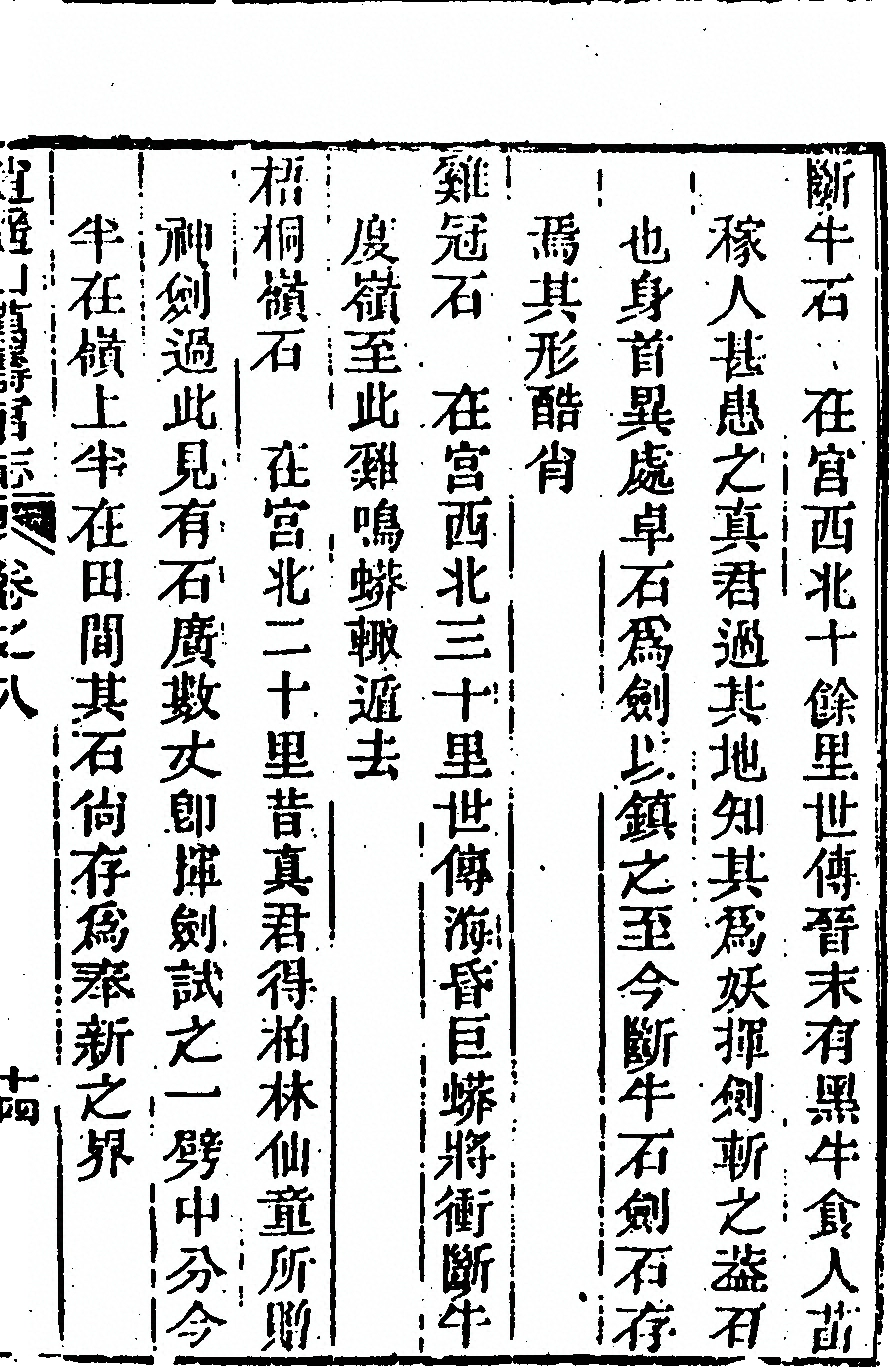 斷牛石 在宫西北十餘里世傳晉末有黑牛食人苗
稼人甚患之真君過其地知其爲妖揮劍斬之葢石
也身首異處卓石爲劍以鎮之至今斷牛石劍石存
焉其形酷肖
雞冠石 在宫西北三十里世傳海昏巨蟒將衝斷牛
度嶺至此雞鳴蟒輙遁去
梧桐嶺石 在宫北二十里昔真君得柏林仙童所贈
神劍過此見有石廣數丈卽揮劍試之一劈中分今
半在嶺上半在田間其石尙存爲奉新之界
逍遥山萬壽宫志 卷之八 十四